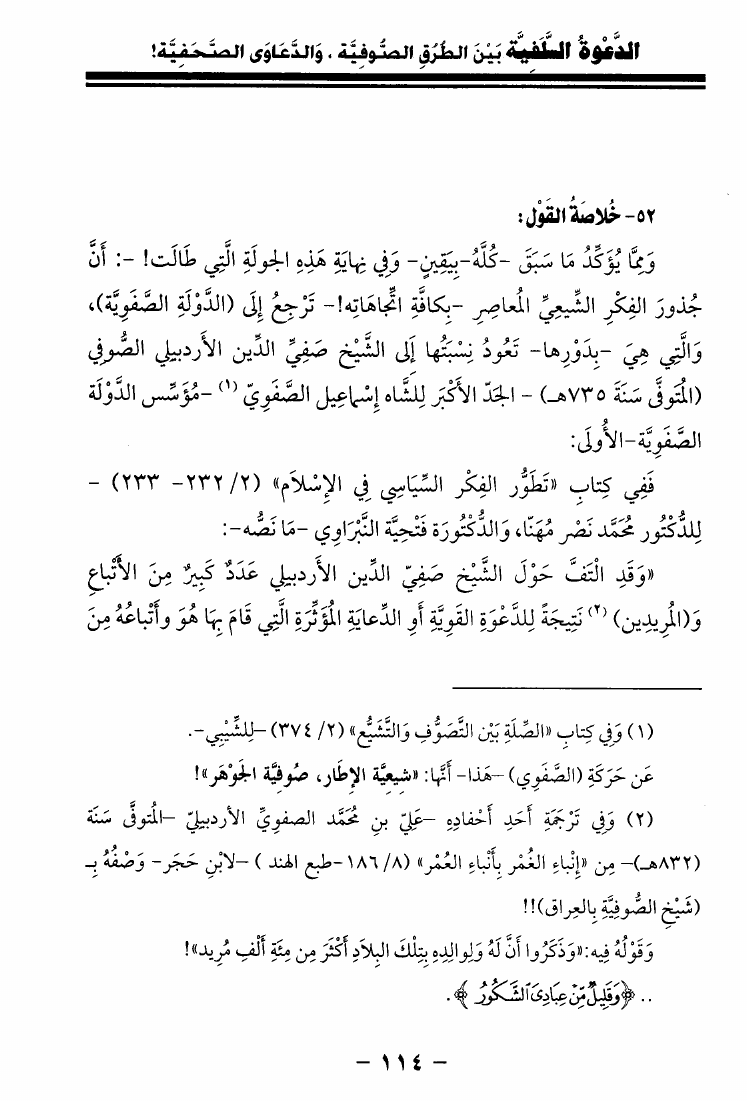 الدَّعْوَةُ السَّلَفِيَّة بَيْنَ الطُّرُقِ الصُّوفِيَّة ، وَالدَّعَاوَى الصَّحَفِيَّة!
٥٢- خُلاصَةُ القَوْل:
وَمِمَّا يُؤَكِّدُ مَا سَبَقَ -كُلَّهُ-بِيَقِينٍ- وَفِي نِهايَةِ هَذِهِ الجولَةِ الَّتِي طَالَت! -: أَنَّ
جُذورَ الفِكْرِ الشِّيعِيِّ المُعاصِرِ -بِكافَّةِ اتِّجاهَاتِه!- تَرْجِعُ إِلَى (الدَّوْلَةِ الصَّفَوِيَّة)،
وَالَّتِي هِيَ -بِدَوْرِها- تَعُودُ نِسْبَتُها إِلَى الشَّيْخ صَفِيِّ الدِّين الأردبيلي الصُّوفِي
(المُتَوفَّى سَنَةَ ٧٣٥هـ) - الجَدّ الأَكْبَر لِلشَّاه إِسْماعِيل الصَّفَوِيّ (١) -مُؤَسِّس الدَّوْلَة
الصَّفَوِيَّة-الأُولَى:
فَفِي كِتابِ «تَطَوُّر الفِكْر السِّيَاسِي فِي الإِسْلاَم» (٢/ ٢٣٢- ٢٣٣) -
لِلدُّكْتُور مُحَمَّد نَصْر مُهَنَّا، وَالدُّكْتُورَة فَتْحِيَّة النَّبْرَاوِي -مَا نَصُّه-:
«وَقَدِ الْتَفَّ حَوْلَ الشَّيْخ صَفِيّ الدِّين الأردبيلي عَدَدٌ كَبِيرٌ مِنَ الأَتْباعِ
وَ(المُرِيدِين) (٢) نَتِيجَةً لِلدَّعْوَةِ القَوِيَّةِ أَوِ الدِّعايَةِ المُؤَثِّرَةِ الَّتِي قَامَ بِهَا هُوَ وأَتْباعُهُ مِنَ
(١) وَفِي كِتابِ «الصِّلَةِ بَيْن التَّصَوُّف وَالتَّشَيُّع» (٢/ ٣٧٤) -لِلشَّيْبِي-.
عَن حَرَكَةِ (الصَّفَوِي) -هَذا- أَنَّها: «شيعِيَّة الإِطار، صُوفِيَّة الجَوْهَر»!
(٢) وَفِي تَرْجَمَةِ أَحَدِ أَحْفادِهِ -عَلِيّ بنِ مُحَمَّد الصفويِّ الأردبيليّ -المُتوفَّى سَنَة
(٨٣٢هـ)- مِن «إِنْباءِ الغُمْر بِأَنْباء العُمْر» (٨/ ١٨٦-طبع الهند ) -لابْنِ حَجَر- وَصْفُهُ بِـ
(شَيْخِ الصُّوفِيَّةِ بِالعِراق)!!
وَقَوْلُهُ فِيه:«وَذَكَرُوا أَنَّ لَهُ وَلِوالِدِهِ بِتِلْكَ البِلاَدِ أَكْثَرَ مِن مِئَةِ أَلْفِ مُرِيد»!
.. ﴿وَقَلِيلٌ مِّنْ عِبَادِيَ الشَّكُورُ ﴾.
- ١١٤ -